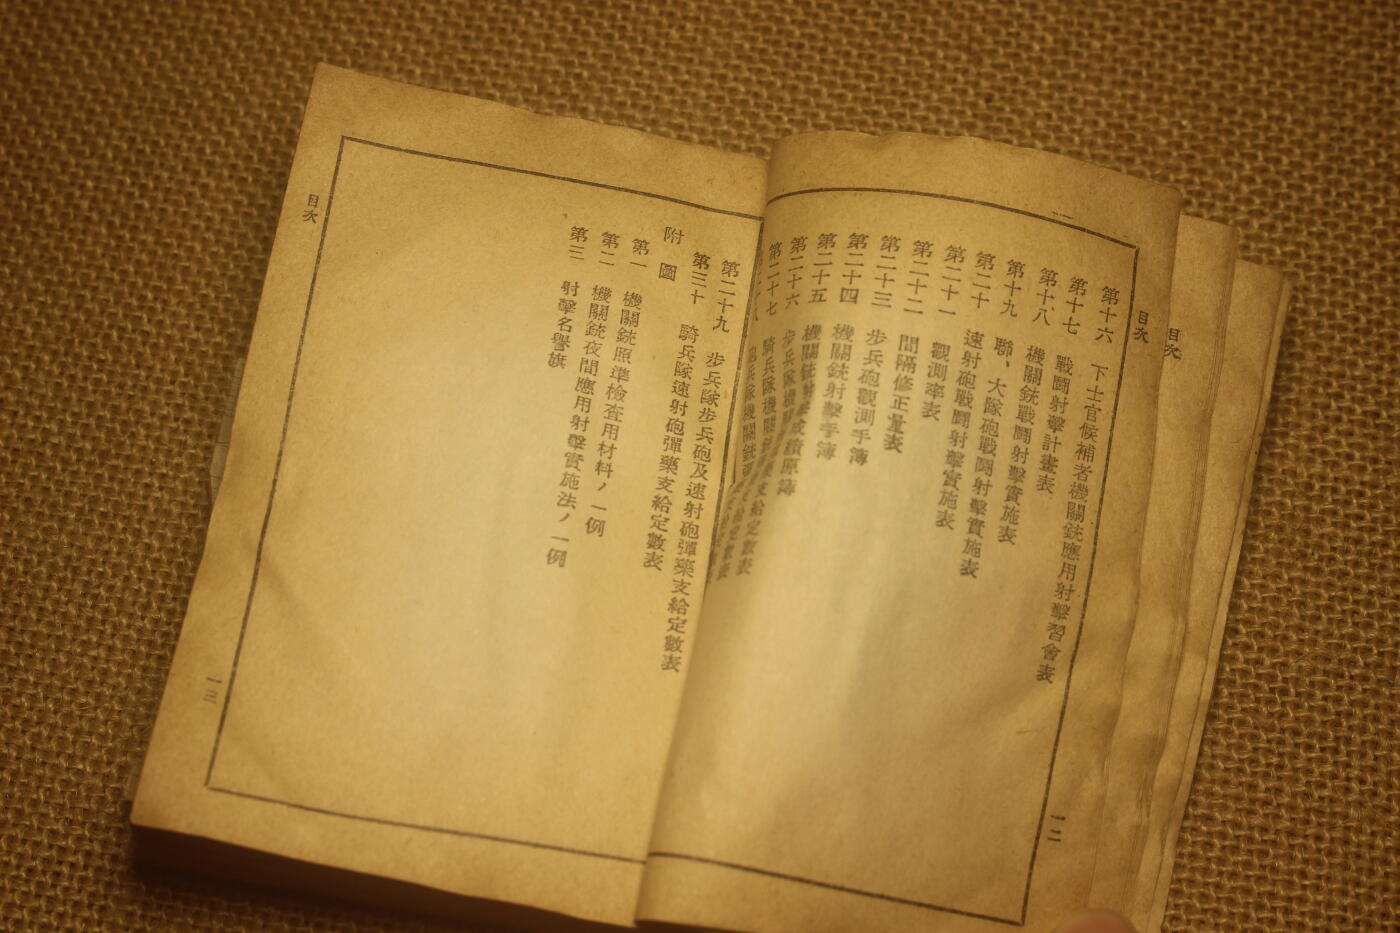 目次
第十六　下士官候補者機關銃應用射擊習會表
第十七　戰鬪射擊計畫表
第十八　機關銃戰鬪射擊實施表
第十九　聯、大隊砲戰鬪射擊實施表
第二十　速射砲戰鬪射擊實施表
第二十一　觀測率表
第二十二　間隔修正量表
第二十三　步兵砲觀測手簿
第二十四　機關銃射擊手簿
第二十五　機關銃射擊成績原簿
第二十六　步兵隊機關銃彈藥支給定數表
第二十七　騎兵隊機關銃彈藥支給定數表
兵隊機關銃
一二
目次
第二十九　步兵隊步兵砲及速射砲彈藥支給定數表
第三十　騎兵隊速射砲彈藥支給定數表
附圖
第一　機關銃照準檢査用材料ノ一例
第二　機關銃夜間應用射擊實施法ノ一例
第三　射擊名譽旗
一三
目次